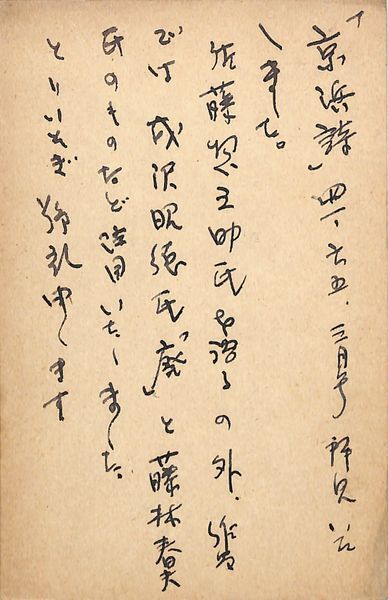 「京浜詩」三月号 拝見いた
しました。
佐藤惣之助氏を語るの外、
では 成沢昭徳氏「廃」と藤林春夫
氏のものなど注目いたしました。
とりいそぎ 御礼申します